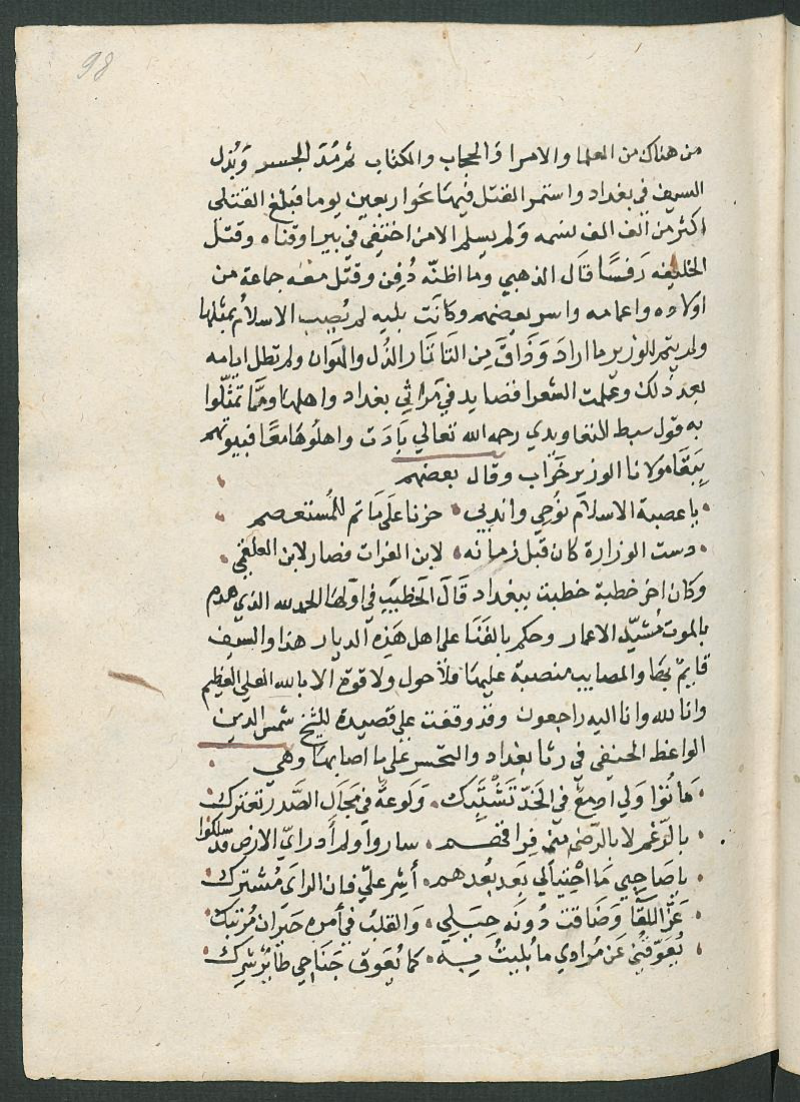 98
من هناك من العلما والامرا والحجاب والكتاب ثم مد الجسر وبذل
السيف في بغداد واستمر القتل فيها نحوا ربعين يوما فبلغ القتلى
اكثر من الف الف نسمه ولم يسلم الا من اختفى في بير او قناه وقتل
الخليفه رفسًا قال الذهبي وما اظنّه دُفِن وقتل معه جماعة من
اولاده واعمامه واسر بعضهم وكانت بليه لم يُصِب الاسلامُ بمثلها
ولم يتم للوزير ما اراد وَذَاقَ مِن التاتار الذُل والهوان ولم تطل ايامه
بعد ذلك وعملت الشعرا قصايد في مراثي بغداد واهلها ومما تمثّلوا
به قول سبط التعاويدي رحمه الله تعالي بَادَت واهلُوهَا معًا فبيوتهم
بِبَقَا مولانا الوزير خَرَاب وقال بعضهم
يا عصبة الاسلام نُوحِي واندبي حزنا عَلَى مَا تم للمُستعصم
دست الوزارة كان قبل زمانه لابن الفرات فصار لابن العلقمي
وكان اخر خطبة خطبت ببغداد قال الخطيب في اولها الحمد لله الذي هدم
بالموت مُشيّد الاعمار وحكم بالفَنَا على اهل هَذِه الديار هذا والسيف
قايم بها والمصايب منصبة عليها فلا حول ولا قوة الا بالله العلي العظيم
وانا لله وانا اليه راجعون وقد وقفت على قصيدة للشيخ شمس الدين
الواعظ الحنفي في رثا بغداد والتحسر على ما اصابها وهي
بَانُوا وَلي ادمعٌ في الخَدّ تَشْتَبِك وَلوعَةٌ في مَجَال الصَّدر تعتركُ
بالرّغم لا بالرّضى مني فراقهم ساروا ولم أدر ايّ الارض قد سلكوا
يا صاحبي مَا احْتِيالي بَعد بُعدهم أشِر عليّ فان الراىَ مُشتركُ
عَزَّ اللقَا وَضَاقت دُونَه حِيَلِي وَالقلبُ في أمره حَيرَان مُرتبكُ
يُعَوّقُني عَن مُرَادي ما بُليتُ بِه كما يُعَوق جَنَاحي طائرٍ شركُ